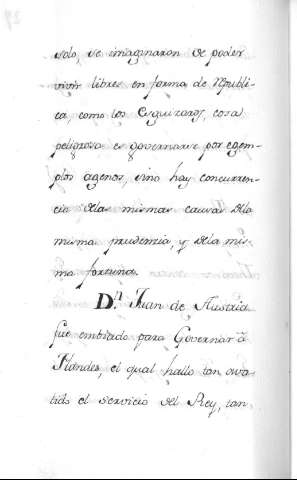 solo, se imaginaron de poder
vivir libres en forma de Republi-
ca, como los Esguizaros, cosa
peligrosa es governarse por egem-
plos agenos, sino hay concurren-
cia delas mismas causas dela
misma prudenzia, y dela mis-
ma fortuna.
Dn Juan de Austria
fue embiado para Governar á
Flandes, el qual hallo tan aba-
tido el servicio del Rey, tan-